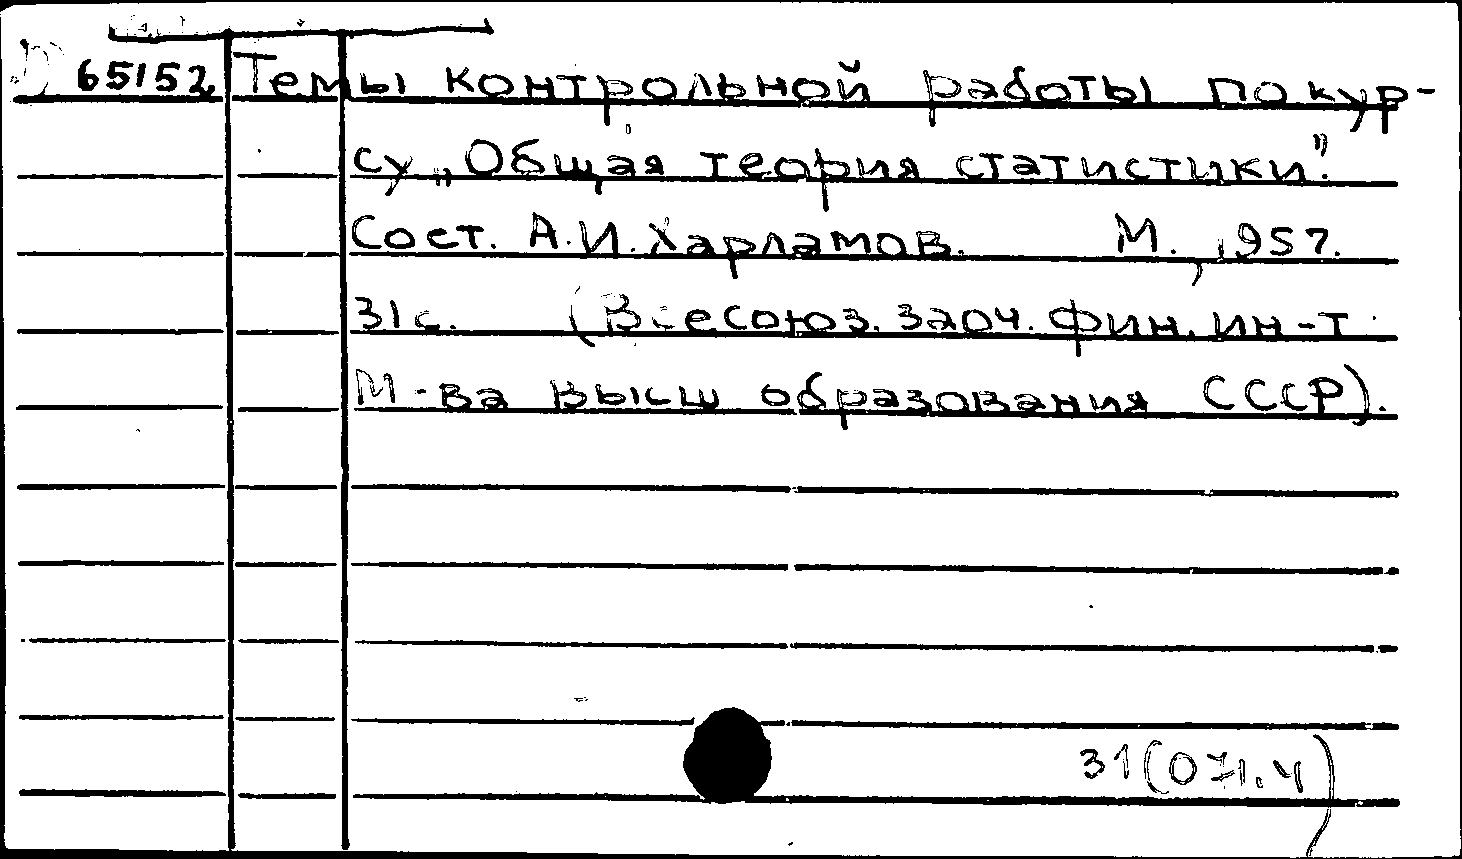 D 65152 Темы контрольной работы по кур-
су „Общая теория статистики".
Сост. А.И. Харламов. М., 1957.
31 с. (Всесоюз. заоч. фин. ин-т
М-ва высш образования СССР).
31(071.4)